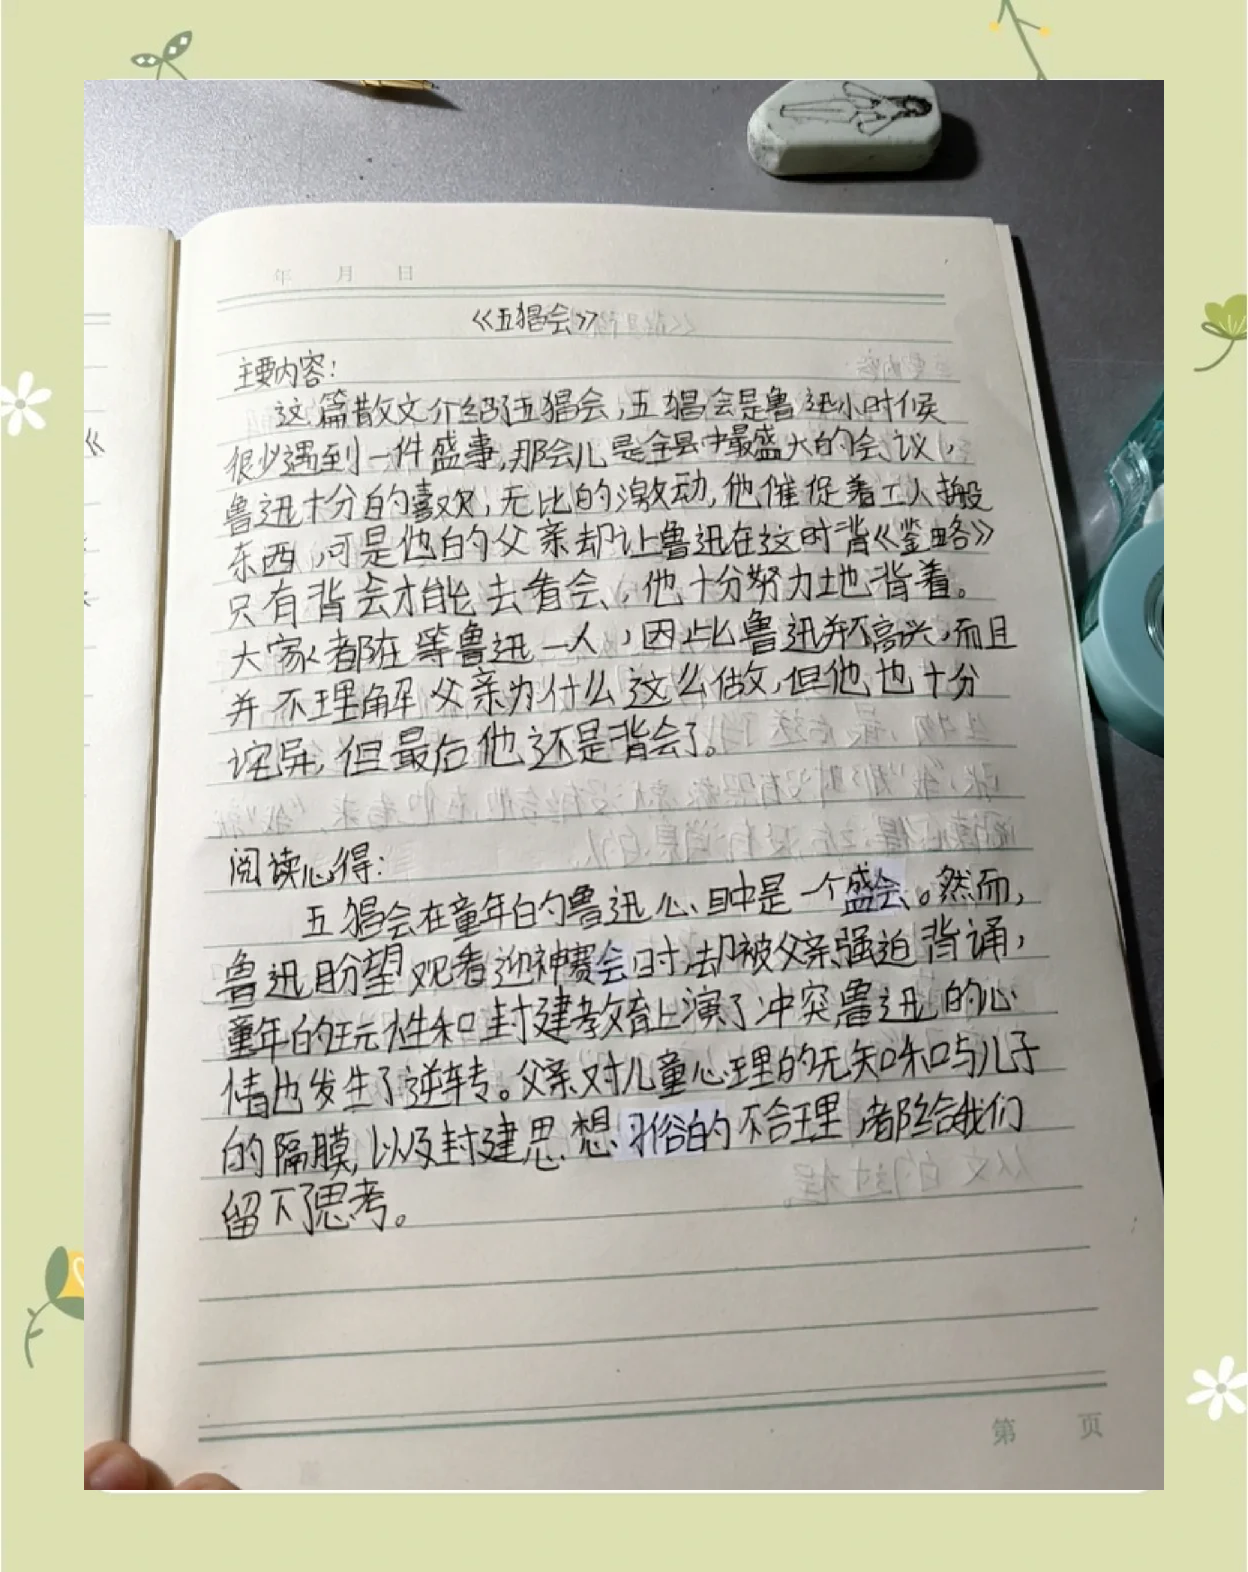 年 月 日
《五猖会》
主要内容:
这篇散文介绍了五猖会,五猖会是鲁迅小时候
很少遇到一件盛事,那会儿是全县中最盛大的会议,
鲁迅十分的喜欢,无比的激动,他催促着工人搬
东西,可是他的父亲却让鲁迅在这时背《鉴略》
只有背会才能去看会,他十分努力地背着。
大家都在等鲁迅一人,因此鲁迅并不高兴,而且
并不理解父亲为什么这么做,但他也十分
诧异,但最后他还是背会了。
阅读心得:
五猖会在童年的鲁迅心目中是一个盛会。然而,
鲁迅盼望观看迎神赛会时,却被父亲强迫背诵,
童年的玩性和封建教育上演了冲突,鲁迅的心
情也发生了逆转。父亲对儿童心理的无知和与儿子
的隔膜,以及封建思想习俗的不合理,都给我们
留下了思考。
第 页